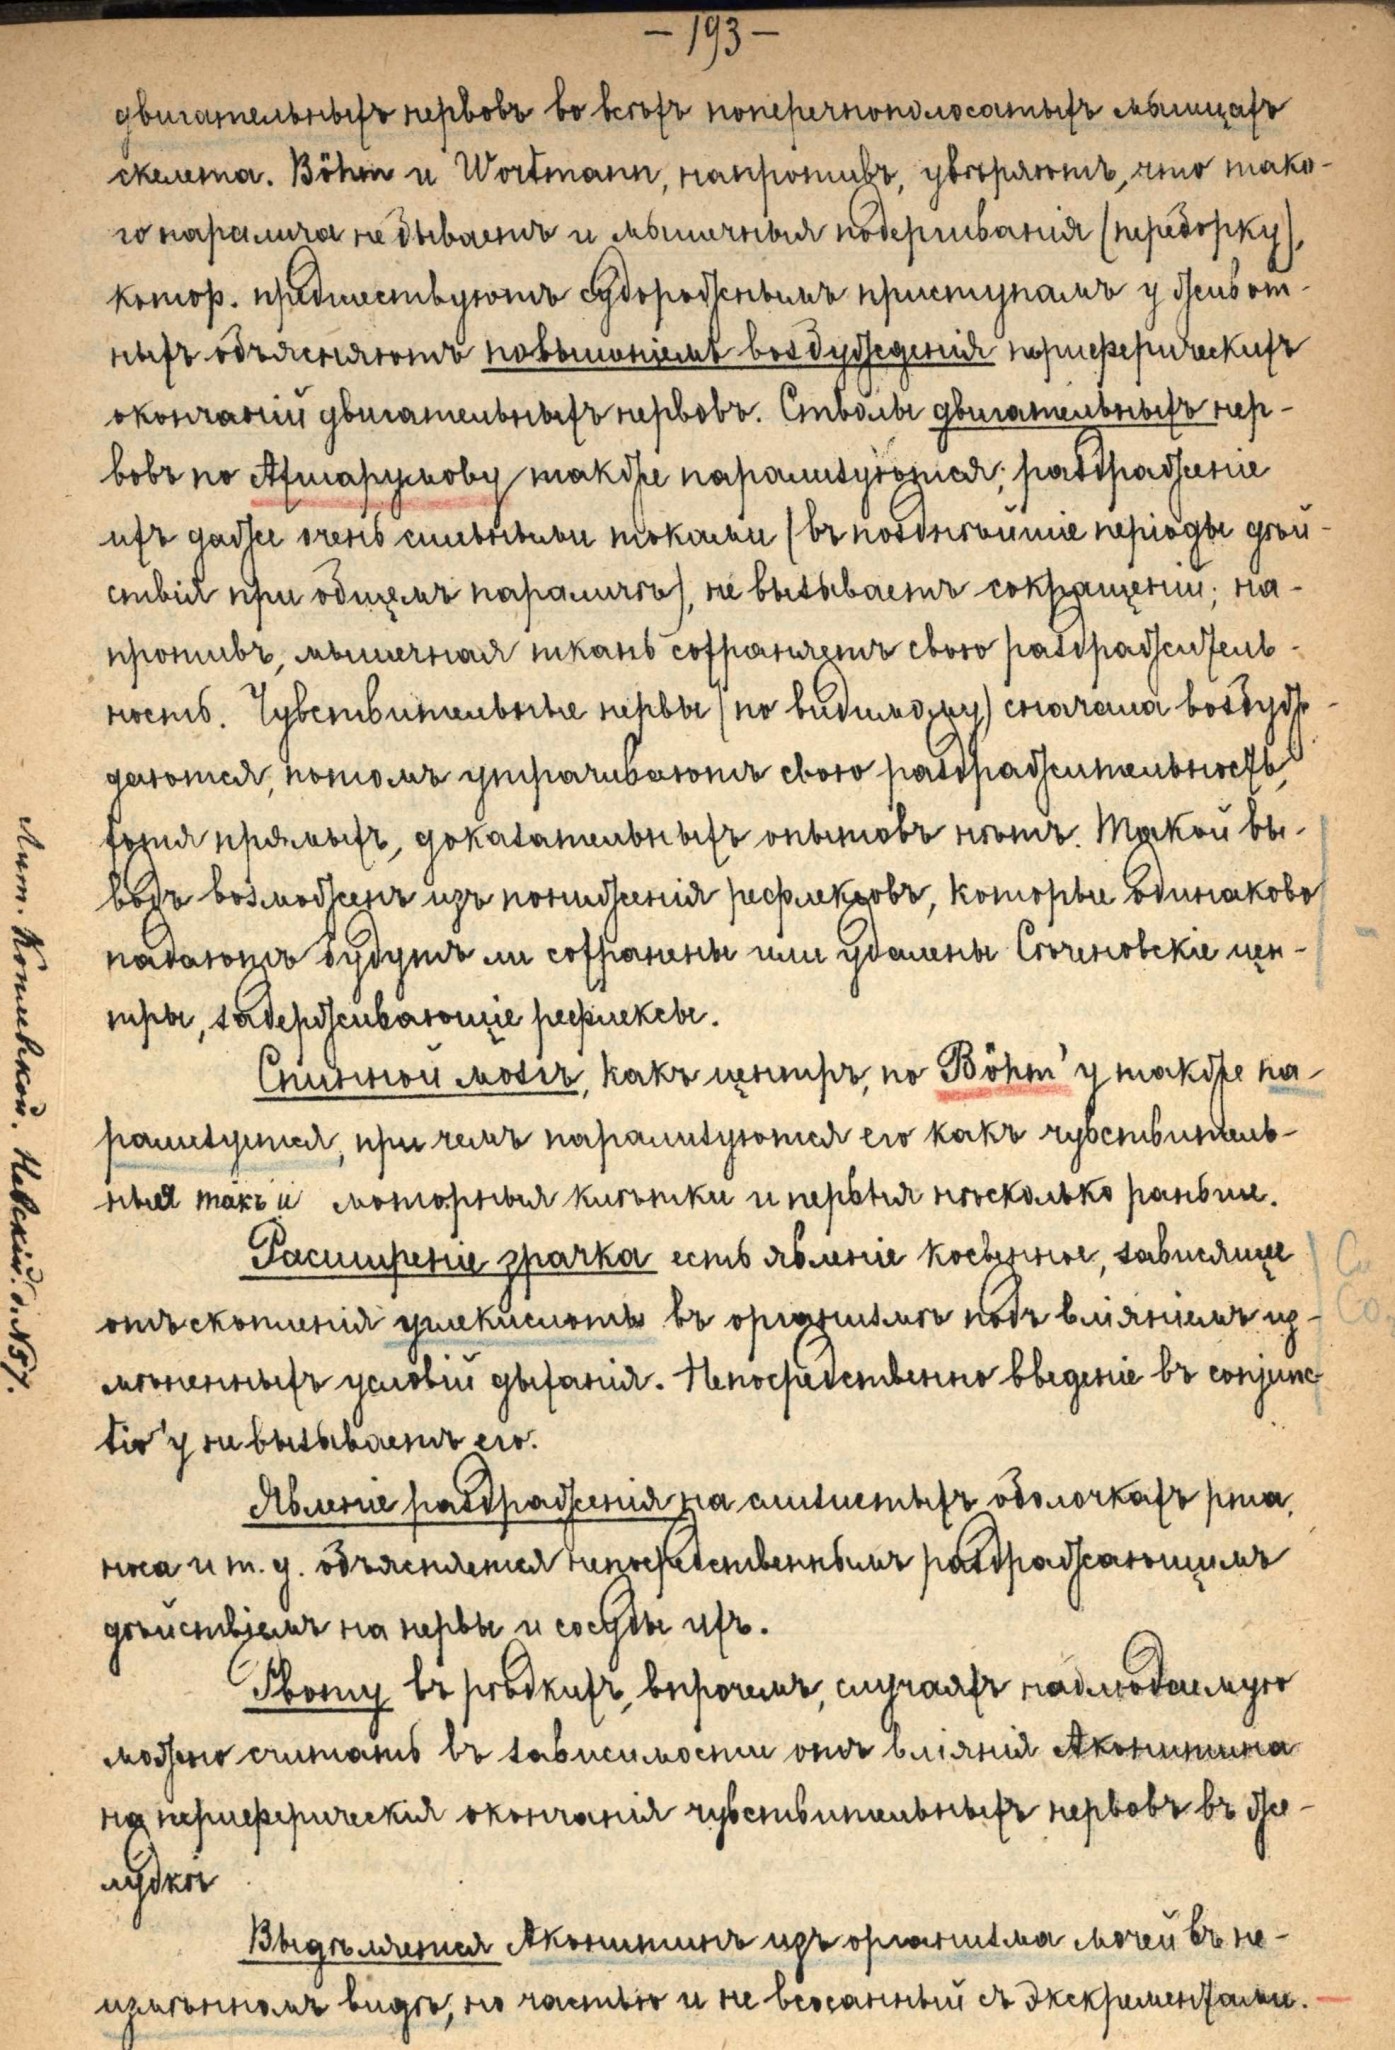 — 193 —
двигательныхъ нервовъ во всѣхъ поперечнополосатыхъ мышцахъ
скелета. Böhm и Wortmann, напротивъ, увѣряютъ, что тако-
го паралича не бываетъ и мышечныя подергиванія (передорку),
котор. предшествуютъ судорожнымъ приступамъ у живот-
ныхъ объясняютъ повышеніемъ возбужденія периферическихъ
окончаній двигательныхъ нервовъ. Стволы двигательныхъ нер-
вовъ по Ахшарумову также парализуются; раздраженіе
ихъ даже очень сильными токами (въ позднѣйшіе періоды дѣй-
ствія при общемъ параличѣ), не вызываетъ сокращеній; на-
противъ, мышечная ткань сохраняетъ свою раздражитель-
ность. Чувствительные нервы (по видимому) сначала возбуж-
даются, потомъ утрачиваютъ свою раздражительность,
хотя прямыхъ, доказательныхъ опытовъ нѣтъ. Такой вы-
водъ возможенъ изъ пониженія рефлексовъ, которые одинаково
падаютъ будутъ ли сохранены или удалены Сѣченовскіе цен-
тры, задерживающіе рефлексы.
Спинной мозгъ, какъ центръ, по Böhm'у также па-
рализуется, при чемъ парализуются его какъ чувствитель-
ныя такъ и моторныя клѣтки и первыя нѣсколько раньше.
Расширеніе зрачка есть явленіе косвенное, зависящее
отъ скопленія углекислоты въ организмѣ подъ вліяніемъ из-
мѣненныхъ условій дыханія. Непосредственно введеніе въ conjunc-
tiv'у не вызываетъ его.
Явленіе раздраженія на слизистыхъ оболочкахъ рта,
носа и т. д. объясняется непосредственнымъ раздражающимъ
дѣйствіемъ на нервы и сосуды ихъ.
Рвоту въ рѣдкихъ, впрочемъ, случаяхъ наблюдаемую
можно считать въ зависимости отъ вліянія Аконитина
на периферическія окончанія чувствительныхъ нервовъ въ же-
лудкѣ
Выдѣляется Аконитинъ изъ организма мочей въ не-
измѣнномъ видѣ, но частью и не всосанный съ экскрементами.
Лит. Котельской. Невскій. д. № 57.